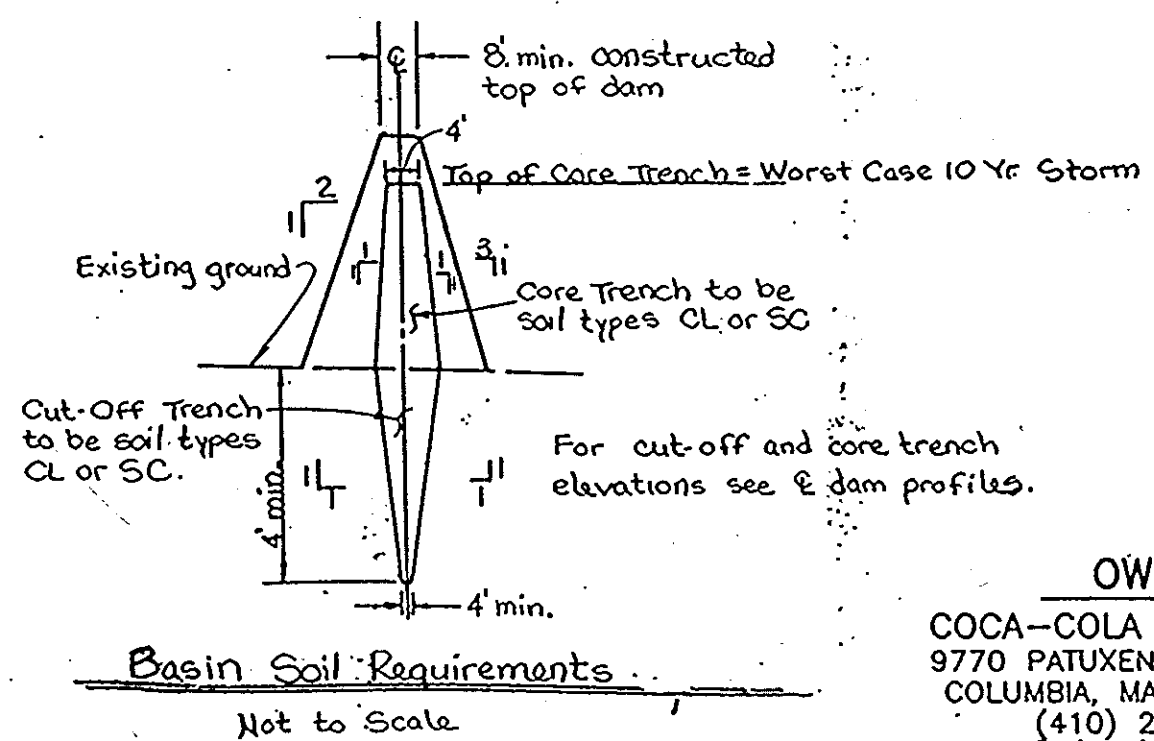 ℄
8'. min. constructed
top of dam
4'
Top of Core Trench = Worst Case 10 Yr. Storm
2
1
Existing ground
1
1
1
1
3
1
Core Trench to be
soil types CL or SC
Cut-Off Trench
to be soil types
CL or SC.
4' min.
1
1
1
1
For cut-off and core trench
elevations see ℄ dam profiles.
4' min.
Basin Soil Requirements
Not to Scale
OW
COCA-COLA
9770 PATUXEN
COLUMBIA, MA
(410) 2